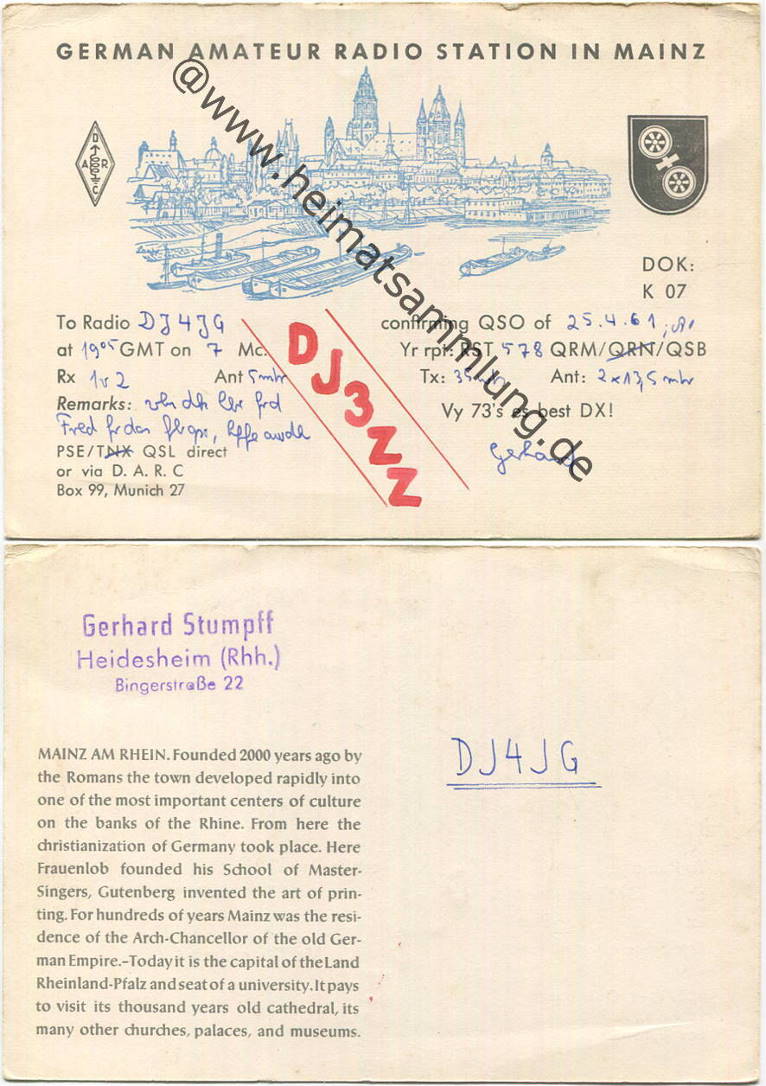 GERMAN AMATEUR RADIO STATION IN MAINZ
@www.heimatsammlung.de
D
A R
C
DOK:
K 07
To Radio DJ4JG confirming QSO of 25.4.61
at 19⁰⁵ GMT on 7 Mc. Yr rpt: RST 578 QRM/QRN/QSB
Rx 1v2 Ant 5mtr Tx: Ant: 2x13,5 mtr
Remarks: Vy 73's es best DX!
DJ3ZZ
PSE/TNX QSL direct
or via D. A. R. C
Box 99, Munich 27
Gerhard
Gerhard Stumpff
Heidesheim (Rhh.)
Bingerstraße 22
DJ4JG
MAINZ AM RHEIN. Founded 2000 years ago by
the Romans the town developed rapidly into
one of the most important centers of culture
on the banks of the Rhine. From here the
christianization of Germany took place. Here
Frauenlob founded his School of Master-
Singers, Gutenberg invented the art of prin-
ting. For hundreds of years Mainz was the resi-
dence of the Arch-Chancellor of the old Ger-
man Empire.-Today it is the capital of the Land
Rheinland-Pfalz and seat of a university. It pays
to visit its thousand years old cathedral, its
many other churches, palaces, and museums.